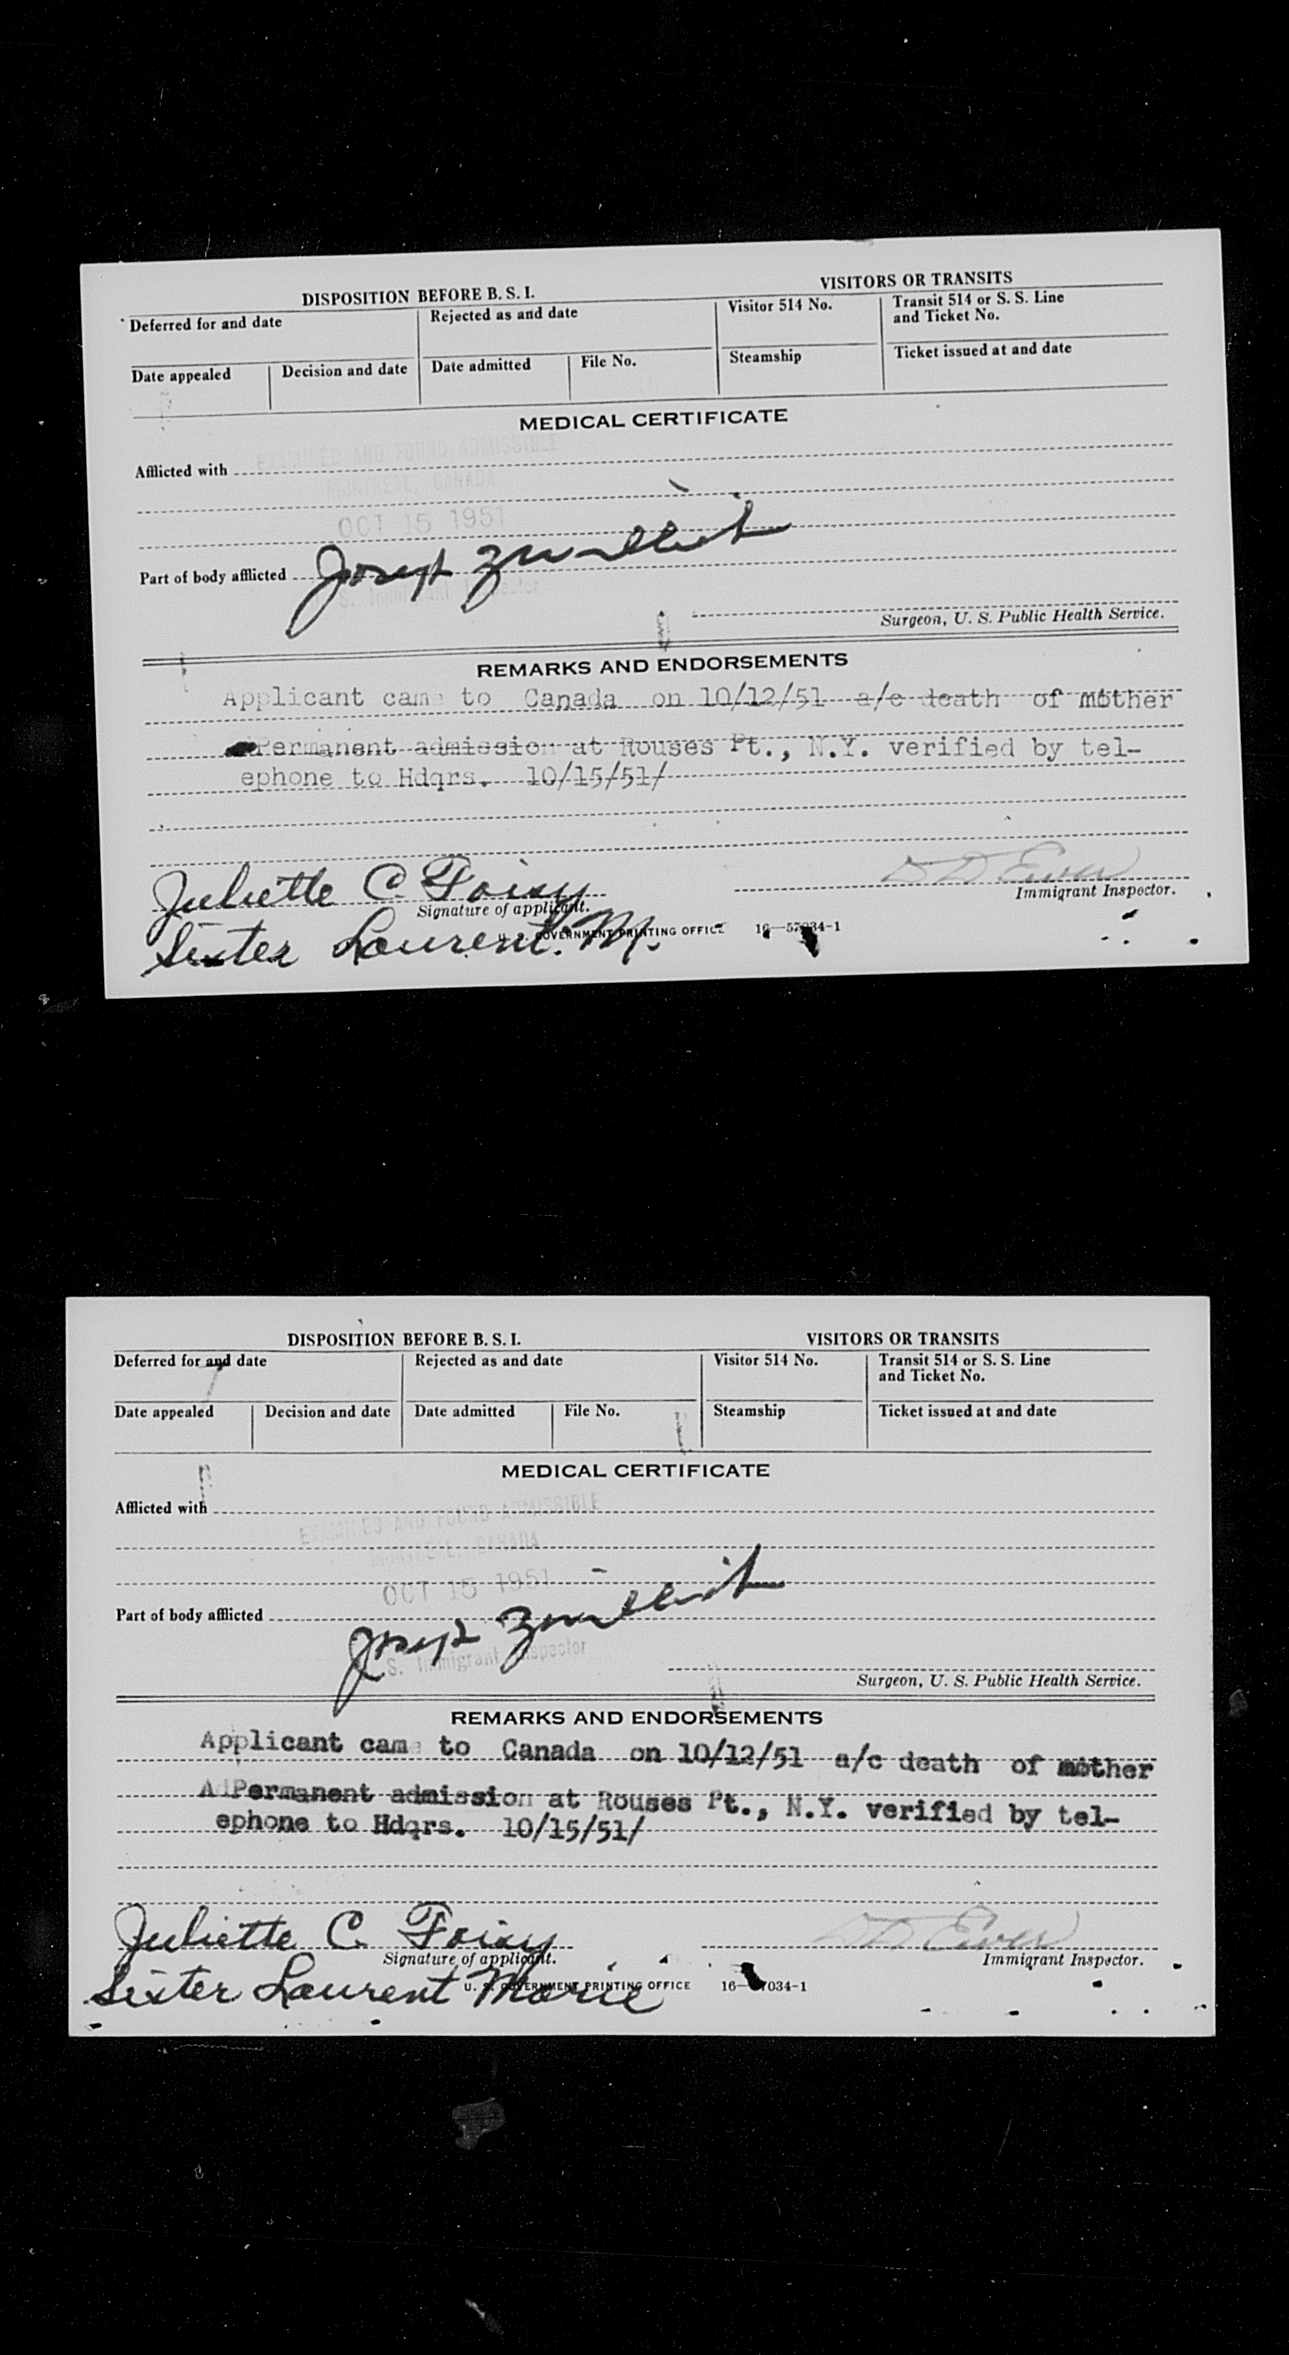 DISPOSITION BEFORE B. S. I.
VISITORS OR TRANSITS
Deferred for and date
Rejected as and date
Visitor 514 No.
Transit 514 or S. S. Line
and Ticket No.
Date appealed
Decision and date
Date admitted
File No.
Steamship
Ticket issued at and date
MEDICAL CERTIFICATE
Afflicted with
EXAMINED AND FOUND ADMISSIBLE
MONTREAL, CANADA
OCT 15 1951
Part of body afflicted
Joseph
S. Immigrant Inspector
Surgeon, U. S. Public Health Service.
REMARKS AND ENDORSEMENTS
Applicant came to Canada on 10/12/51 a/c death of mother
Permanent admission at Rouses Pt., N.Y. verified by tel-
ephone to Hdqrs. 10/15/51/
Juliette C Foisy
Signature of applicant.
Immigrant Inspector.
Sister Laurent. M.
U. S. GOVERNMENT PRINTING OFFICE 16—57034-1
DISPOSITION BEFORE B. S. I.
VISITORS OR TRANSITS
Deferred for and date
Rejected as and date
Visitor 514 No.
Transit 514 or S. S. Line
and Ticket No.
Date appealed
Decision and date
Date admitted
File No.
Steamship
Ticket issued at and date
MEDICAL CERTIFICATE
Afflicted with
EXAMINED AND FOUND ADMISSIBLE
MONTREAL, CANADA
OCT 15 1951
Part of body afflicted
Joseph
S. Immigrant Inspector
Surgeon, U. S. Public Health Service.
REMARKS AND ENDORSEMENTS
Applicant came to Canada on 10/12/51 a/c death of mother
AdPermanent admission at Rouses Pt., N.Y. verified by tel-
ephone to Hdqrs. 10/15/51/
Juliette C. Foisy
Signature of applicant.
Immigrant Inspector.
Sister Laurent Marie
U. S. GOVERNMENT PRINTING OFFICE 16—57034-1